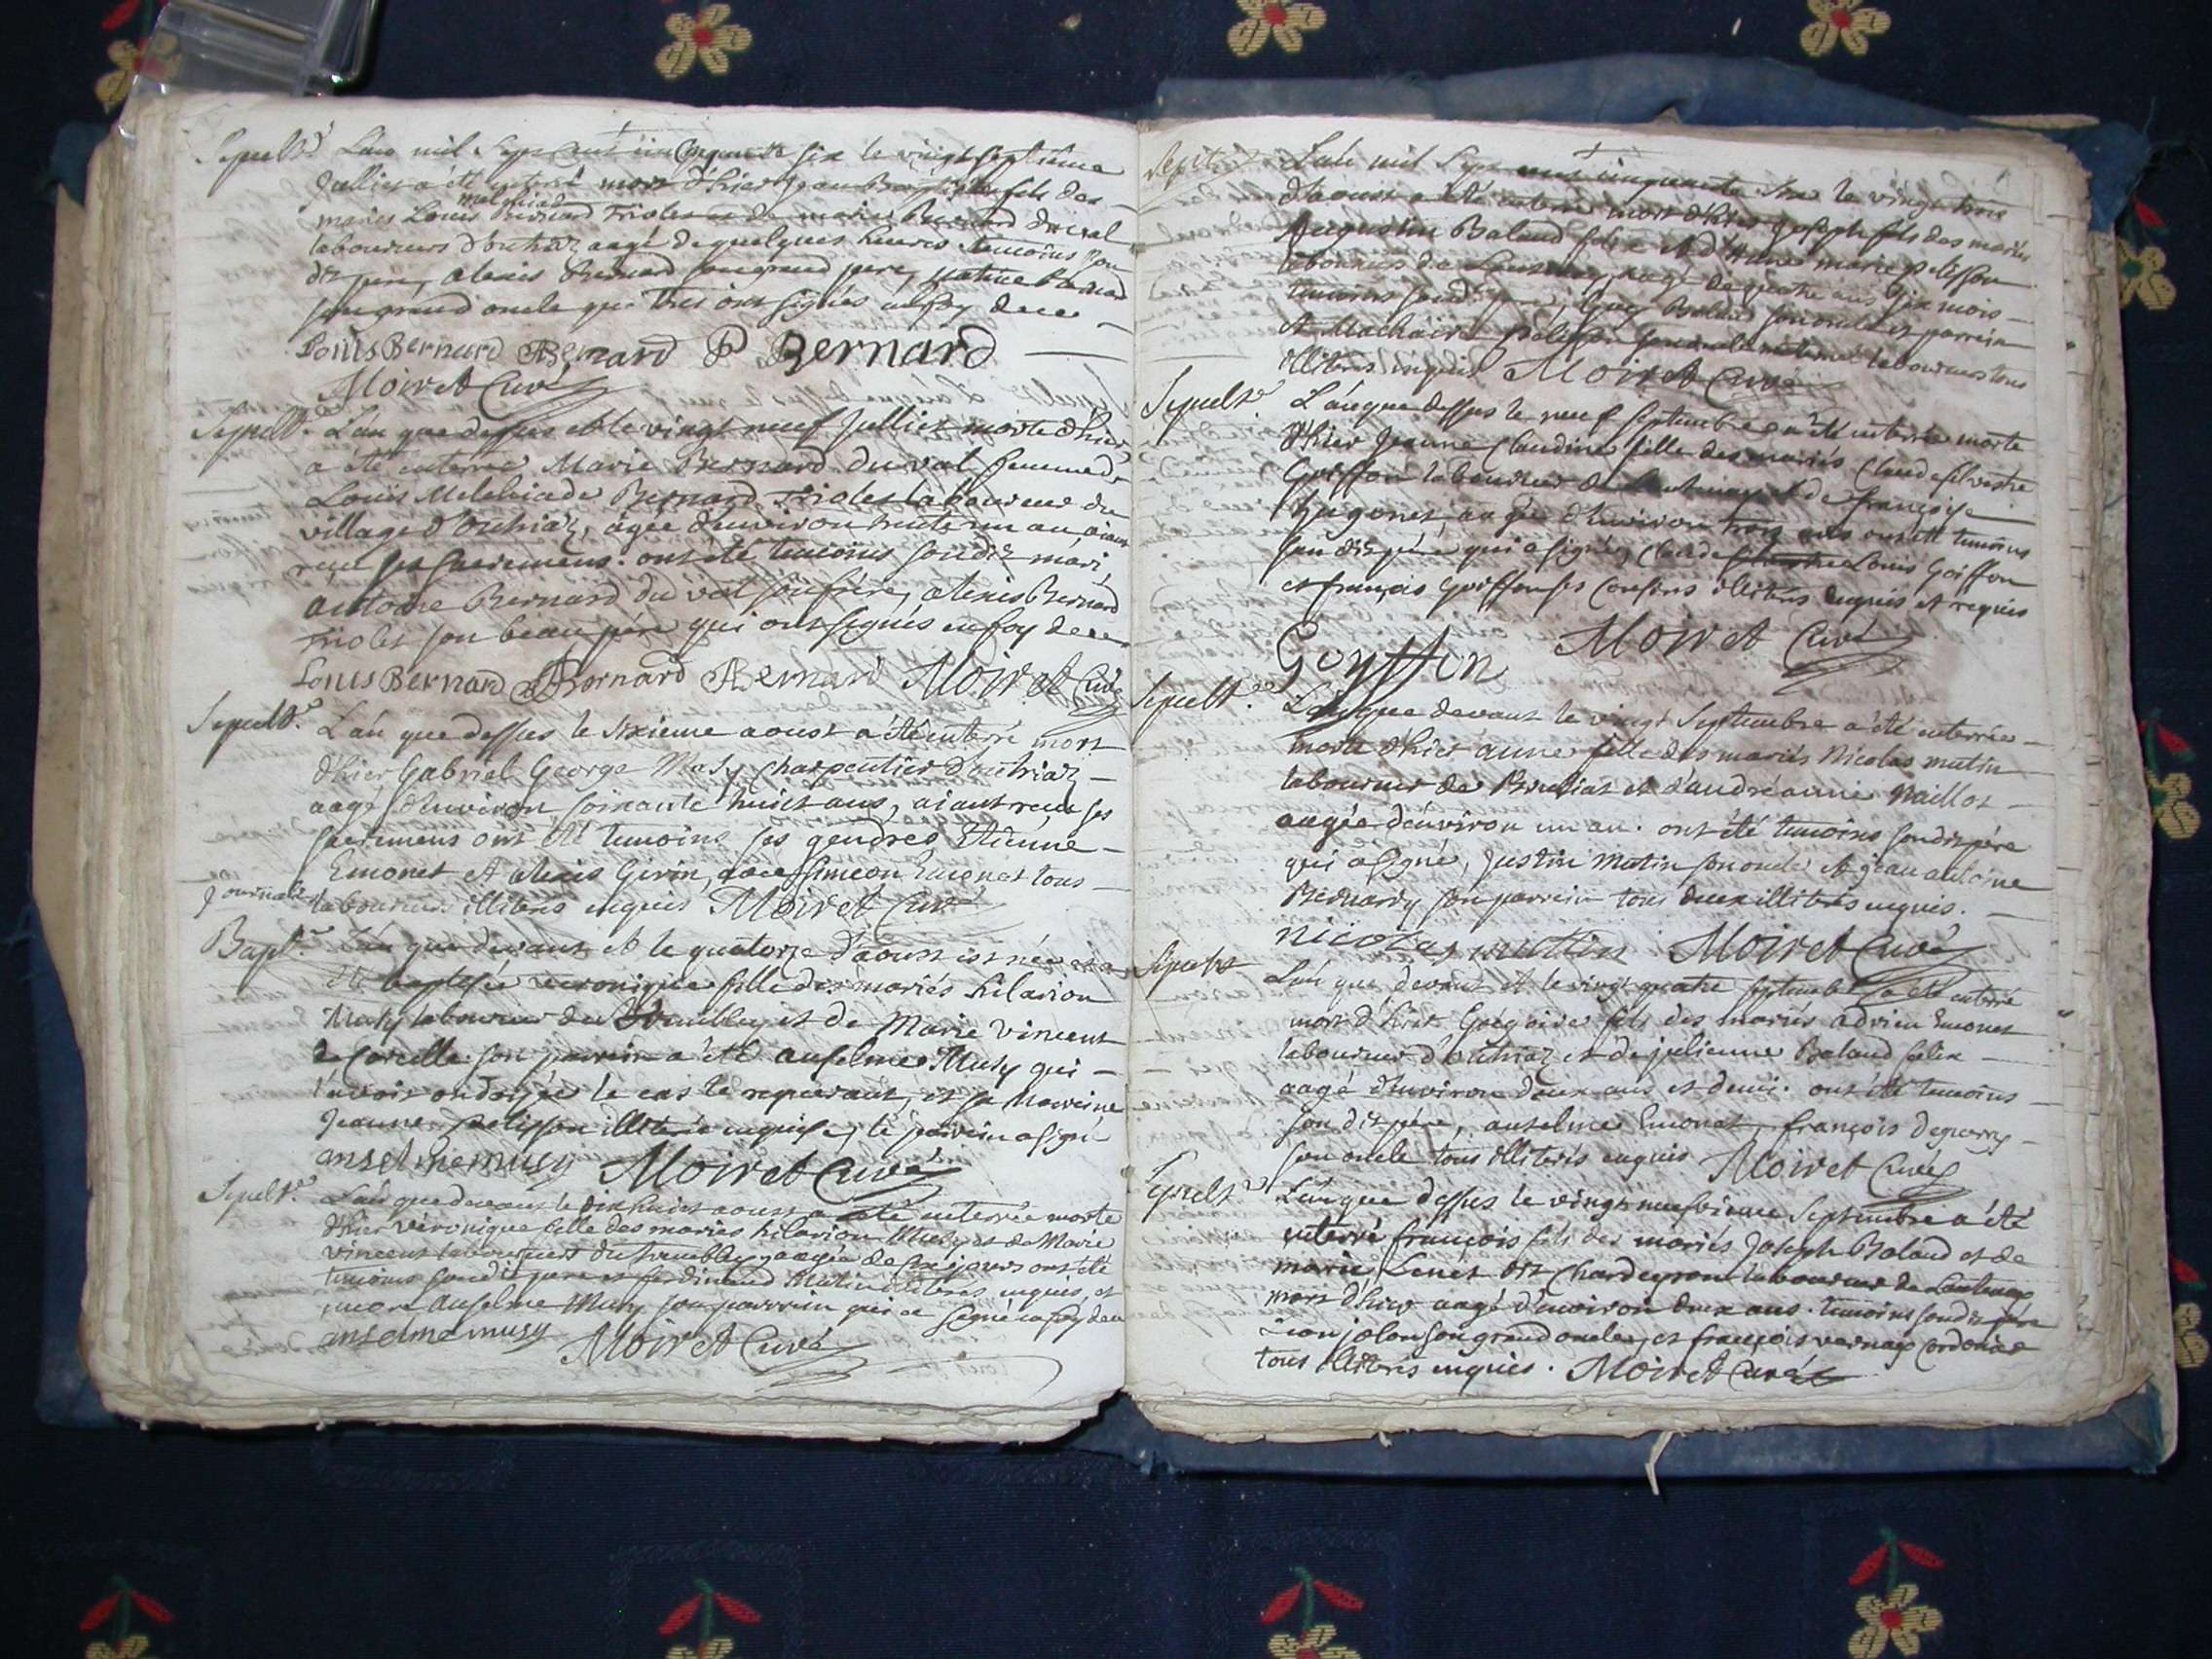 Sepult.e L'an mil Sept Cent Cinquante six le vingt septieme
Juillet a été enterré mort d'hier Jean Baptiste fils des
melquiad
mariés Louis Bernard Triolet et de marie Bernard duval
laboureurs d'outriaz aagé de quelques heures temoins son
dit pere, alexis Bernard son grand pere, patrice Bernard
son grand oncle qui tres ont signés en foy de ce
Louis Bernard ABernard P Bernard
Moiret Curé
Sepult.e L'an que dessus et le vingt neuf Juillet morte d'hier
a été enterrée Marie Bernard du val femme de
Louis Melchiade Bernard Triolet laboureur du
village d'outriaz, agée d'environ trente un an, aiant
reçu ses sacremens. ont été temoins son dit mari,
antoine Bernard du val son frére, alexis Bernard
Triolet son beau pére qui ont signés en foy de ce
Louis Bernard ABernard ABernard Moiret Curé
Sepult.e L'an que dessus le sixieme aoust a été enterré mort
d'hier Gabriel George Masy charpentier d'outriaz
aagé d'environ soixante huict ans, aiant reçu ses
sacremens ont été temoins ses gendres Etiénne
Emonet et alexis Girin, avec Simeon Emonet tous
journal laboureurs illitérés enquis Moiret Curé
Bapt.e L'an que devant et le quatorze d'aoust est née et a
été baptisée veronique fille des mariés hilarion
Musy laboureur du Trembley et de Marie Vincent
de Corcelle. son parrein a été anselme Musy qui
l'avoit ondoyée le cas le requerant, et sa marreine
Jeanne Pelisson illitérée enquise, le parrein a signé
anselme musy Moiret Curé
Sepult.e L'an que devant le dix huict aoust a été enterrée morte
d'hier véronique fille des mariés hilarion Musy et de Marie
Vincent laboureurs du Trembley, aagée de six jours ont été
temoins son dit pere et ferdinand Mutin illitérés enquis, et
encore Anselme Musy son parrein qui a signé en foy de ce
anselme musy Moiret Curé
Sepult. L'an mil Sept cent cinquante six le vingt trois
d'aoust a été enterré mort d'hier Joseph fils des mariés
Augustin Baland felix et d'Anne marie pelisson
laboureurs de Lantenay, aagé de quatre ans six mois
temoins son dit pere, Guy Baland son oncle et parrein
et Machaire pelisson son oncle maternel laboureurs tous
illitérés enquis Moiret Curé
Sepult.e L'an que dessus le neuf septembre a été enterrée morte
d'hier Jeanne Claudine fille des mariés Claude silvestre
Goiffon laboureur de Lantenay et de françoise
hugonet, aagée d'environ trois ans ont été temoins
son dit pére qui a signé, Claude Louis Goiffon
et françois Goiffon ses Cousins illitérés enquis et requis
Goyffon Moiret Curé
Sepult.e L'an que devant le vingt Septembre a été enterrée
morte d'hier anne fille des mariés Nicolas mutin
laboureur de et d'andréanne Maillot
aagée d'environ un an. ont été temoins son dit pére
qui a signé, Justin Mutin son oncle et jean antoine
Bernardy son parrein tous deux illitérés enquis.
nicolas muttin Moiret Curé
Sepult.e L'an que devant et le vingt quatre septembre a été enterré
mort d'hier Grégoire fils des mariés adrien Emonet
laboureur d'outriaz et de julienne Baland felix
aagé d'environ deux ans et demi. ont été temoins
son dit pére, anselme Emonet, françois deguerry
son oncle tous illitérés enquis Moiret Curé
Sepult.e L'an que dessus le vingt neufvieme Septembre a été
enterré françois fils des mariés Joseph Baland et de
marie Genet dit Chardeyron laboureur de Lantenay
mort d'hier aagé d'environ deux ans. temoins son dit pére
jolan son grand oncle, et françois vernay cordonier
tous illitérés enquis. Moiret Curé